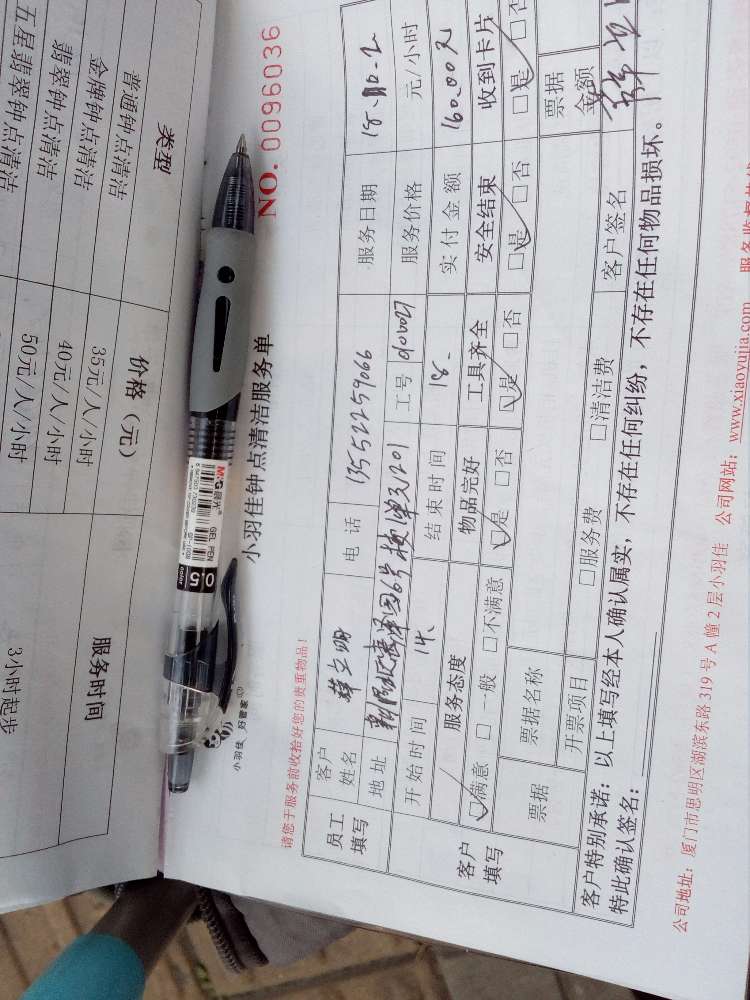 类型 价格（元） 服务时间
普通钟点清洁 35元/人/小时 3小时起步
金牌钟点清洁 40元/人/小时
翡翠钟点清洁 50元/人/小时
五星翡翠钟点清洁
M&G 晨光
GEL PEN
0.5
小羽佳 好管家
小羽佳钟点清洁服务单
NO. 0096036
请您于服务前收拾好您的贵重物品！
员工填写 客户姓名 薛立明 电话 13552259066 服务日期
地址 工号 服务价格 元/小时
客户填写 开始时间 14. 结束时间 18. 实付金额 160.00元
服务态度 物品完好 工具齐全 安全结束 收到卡片
☑满意 □一般 □不满意 ☑是 □否 ☑是 □否 ☑是 □否 ☑是 □否
票据 票据名称 票据金额
开票项目 □服务费 □清洁费 客户签名
客户特别承诺：以上填写经本人确认属实，不存在任何纠纷，不存在任何物品损坏。
特此确认签名：
公司地址：厦门市思明区湖滨东路319号A幢2层小羽佳 公司网站：www.xiaoyujia.com